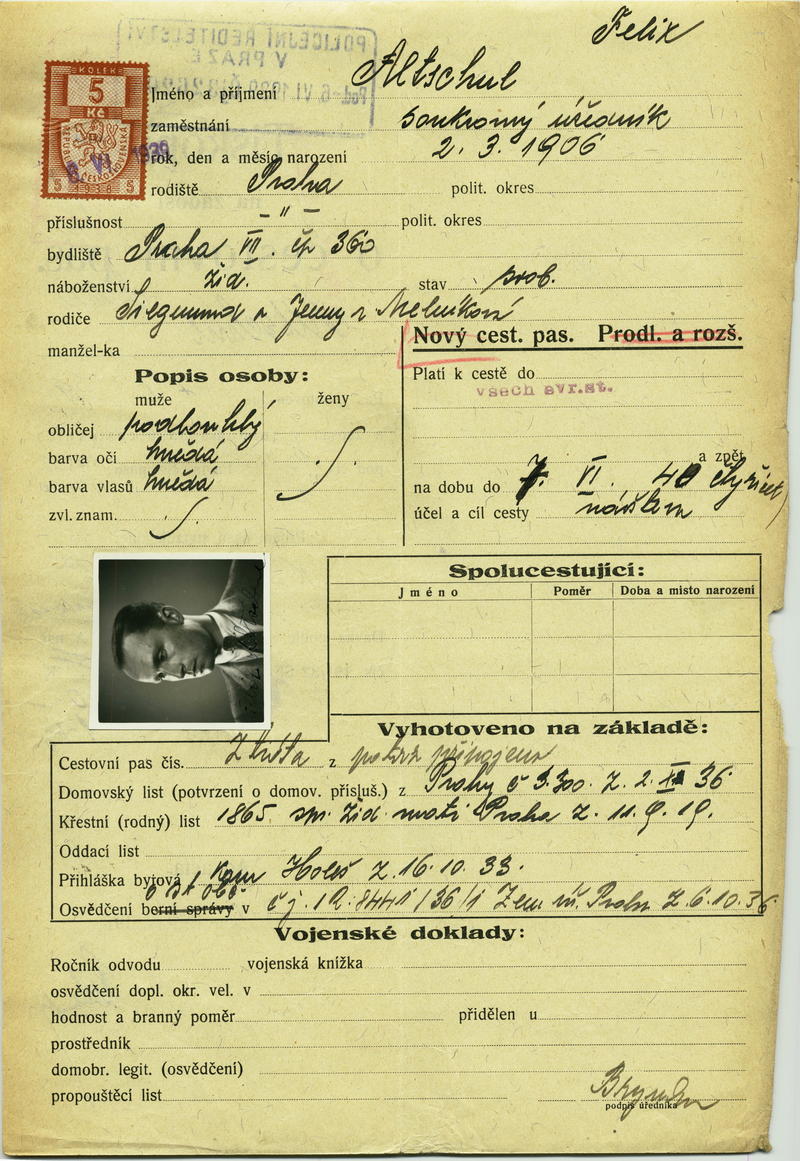 Felix
POLICEJNÍ ŘEDITELSTVÍ
V PRAZE
KOLEK
5
Kč
REPUBLIKA ČESKOSLOVENSKÁ
5 1938 5
6. VI. 1939
Jméno a příjmení Altschul
zaměstnání soukromý úředník
rok, den a měsíc narození 2. 3. 1906
rodiště Praha polit. okres
příslušnost – " – polit. okres
bydliště Praha VII. čp 360
náboženství žid. stav svob.
rodiče Siegmund a Jenny r Melníková
manžel-ka
Nový cest. pas. Prodl. a rozš.
Popis osoby:
muže ženy
obličej podlouhlý
barva očí hnědá
barva vlasů hnědá
zvl. znam.
Platí k cestě do
všech evr. st.
a zpět
na dobu do 7. VI. 40 čtyřicet
účel a cíl cesty
Spolucestující:
Jméno Poměr Doba a místo narození
Vyhotoveno na základě:
Cestovní pas čís. Ztráta z potvrz připojeno
Domovský list (potvrzení o domov. přísluš.) z Prahy č 3.300. z. 2. 36
Křestní (rodný) list 1865 spr. žid matr Praha z. 11. 9. 19.
Oddací list
Přihláška bytová kom Holeš z. 16. 10. 33.
o st obč
Osvědčení berní správy v čj. 12.8441/36/1 Zem úř. Praha z. 6. 10. 36
Vojenské doklady:
Ročník odvodu vojenská knížka
osvědčení dopl. okr. vel. v
hodnost a branný poměr přidělen u
prostředník
domobr. legit. (osvědčení)
propouštěcí list
podpis úředníka